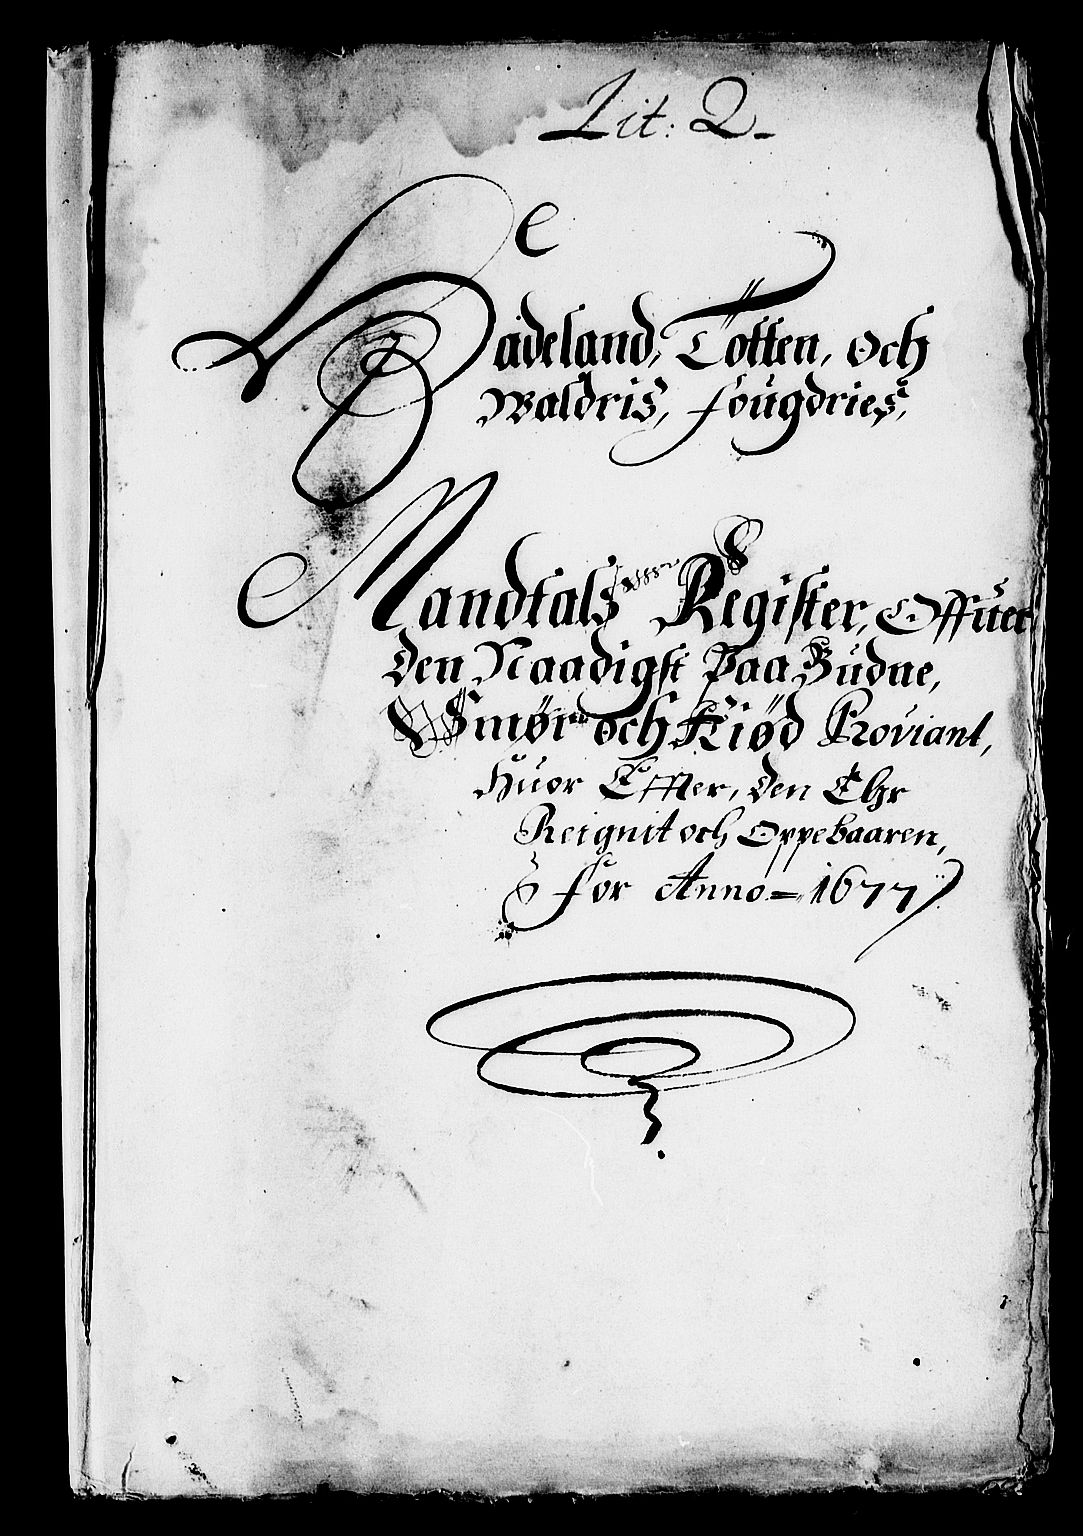 Lit: Q.
Hadeland, Totten, och
Waldris, fougdries,
Mandtals Register, Offuer
den Naadigst Paa Budne,
Smør och Kiød Proviant,
Huor Effter, den Ehr
Reignit och Oppebaaren,
for Anno = 1677